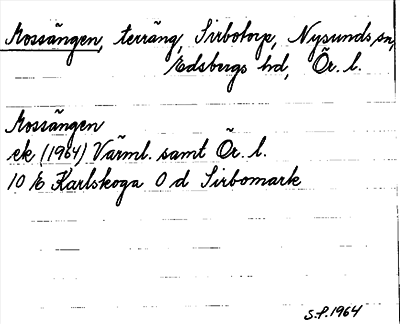 Mossängen, terräng, Sirbotorp, Nysunds sn,
Edsbergs hd, Ör. l.
Mossängen
ek (1964) Värml. samt Ör. l.
10 E Karlskoga 0 d Sirbomark
S.P. 1964